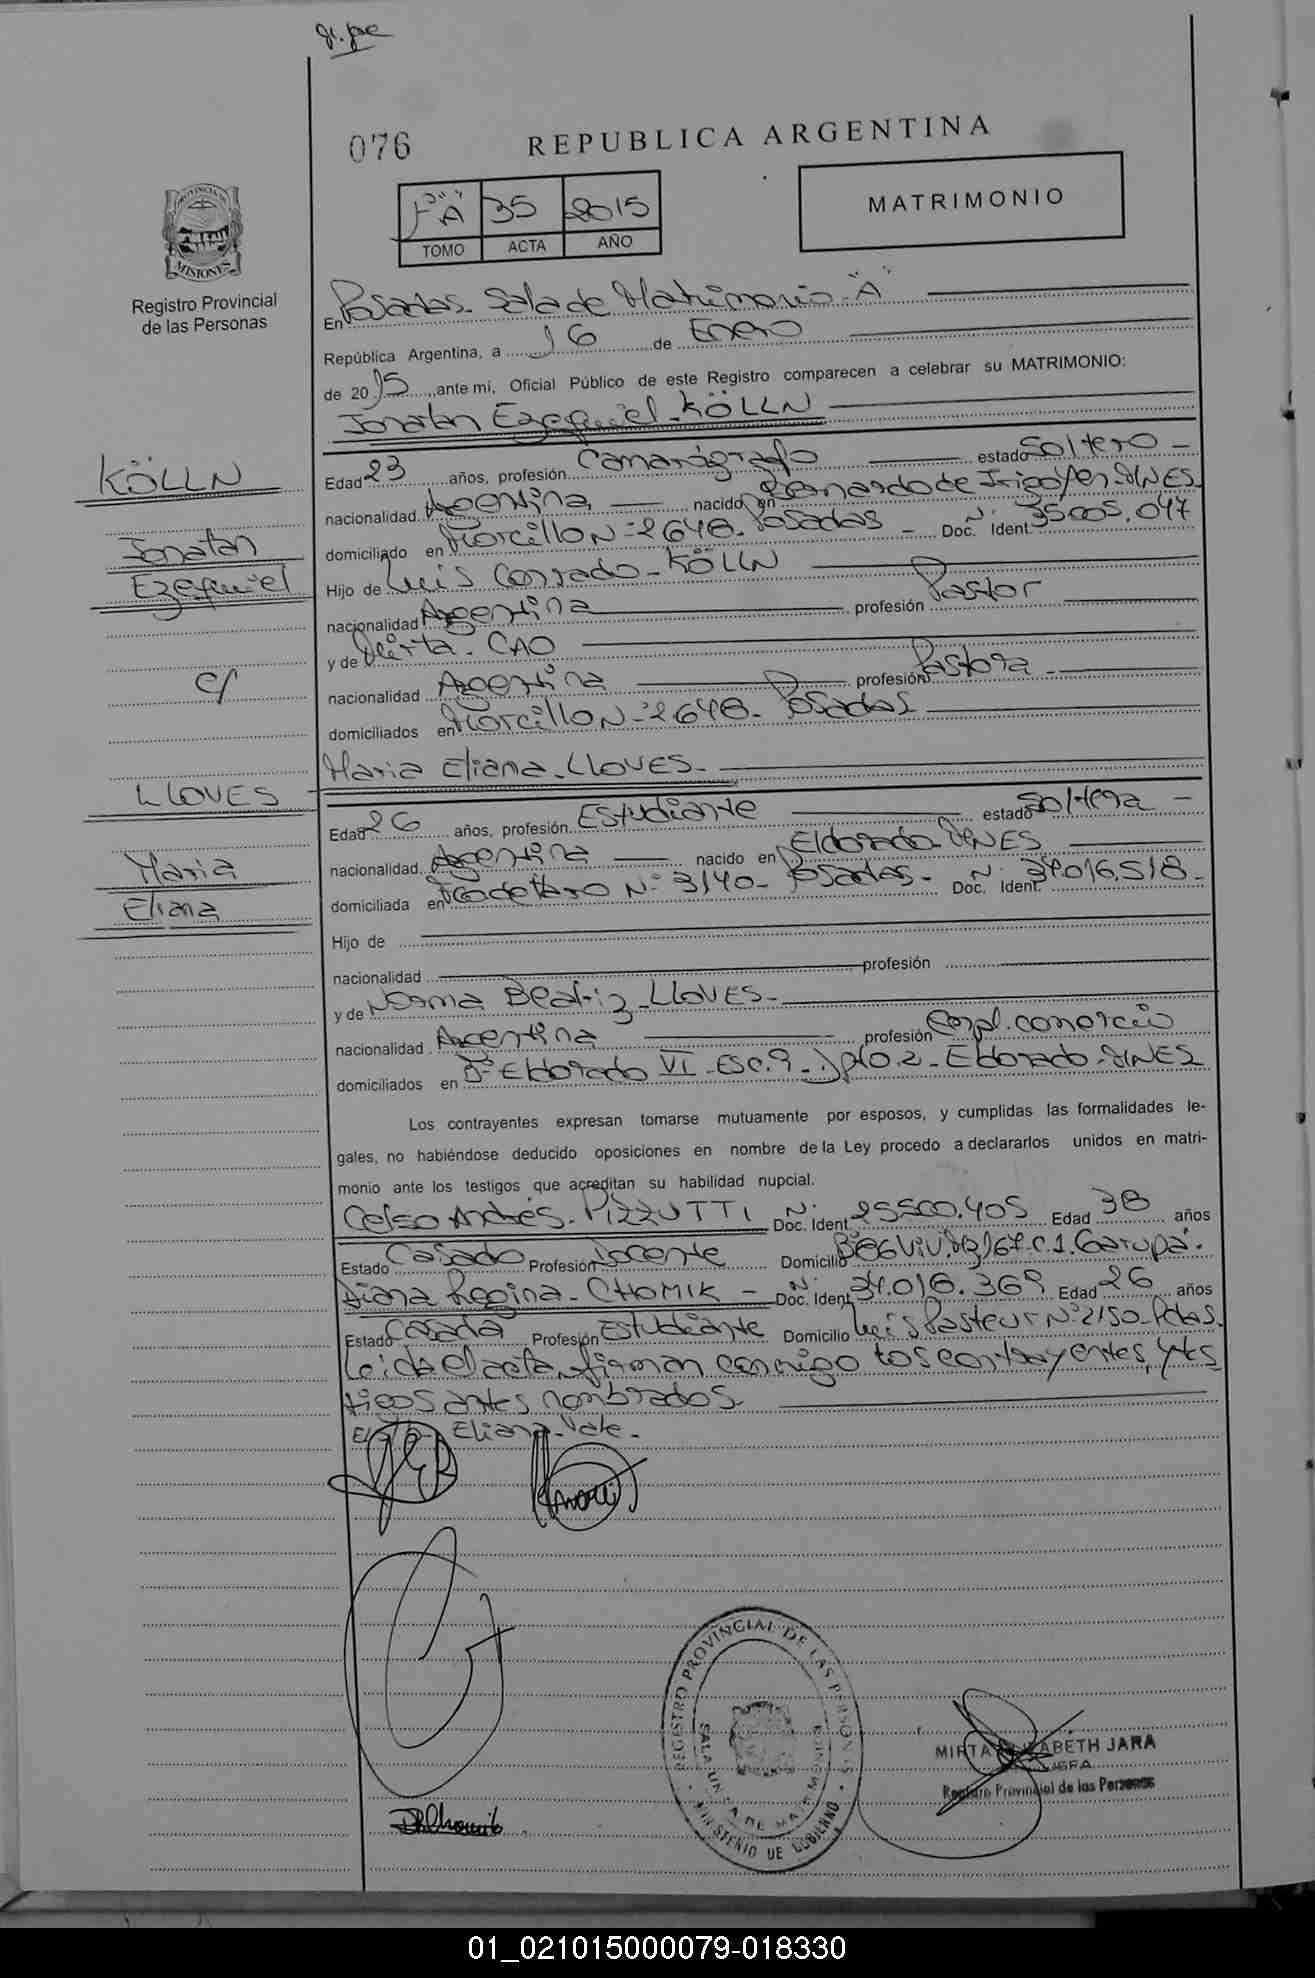 076
REPUBLICA ARGENTINA
"A" 35 2015
TOMO ACTA AÑO
MATRIMONIO
PROVINCIA DE
MISIONES
Registro Provincial
de las Personas
En Posadas- Sala de Matrimonio "A"
República Argentina, a 16 de Enero
de 2015, ante mi, Oficial Público de este Registro comparecen a celebrar su MATRIMONIO:
Jonatan Ezequiel KÖLLN
KÖLLN
Jonatan
Ezequiel
c/
LLOVES
Maria
Eliana
Edad 23 años, profesión Camarógrafo estado Soltero-
nacionalidad Argentina nacido en Bernardo de Irigoyen-MNES.
domiciliado en Morcillo Nº 2648- Posadas- Doc. Ident. Nº 35005.047
Hijo de Luis Conrado- KÖLLN
nacionalidad Argentina profesión Pastor
y de Mirta- CAO
nacionalidad Argentina profesión Pastora-
domiciliados en Morcillo Nº 2648- Posadas
Maria Eliana- LLOVES-
Edad 26 años, profesión Estudiante estado Soltera-
nacionalidad Argentina nacido en Eldorado MNES
domiciliada en Nº 3140- Posadas- Doc. Ident. Nº 34016.518-
Hijo de
nacionalidad profesión
y de Norma Beatriz- LLOVES-
nacionalidad Argentina profesión Empl. comercio
domiciliados en Bº Eldorado VI- ESC. 9- Dpto. 2- Eldorado- MNES
Los contrayentes expresan tomarse mutuamente por esposos, y cumplidas las formalidades le-
gales, no habiéndose deducido oposiciones en nombre de la Ley procedo a declararlos unidos en matri-
monio ante los testigos que acreditan su habilidad nupcial.
Celso Andrés- PIZZUTTI Doc. Ident. Nº 25500.405 Edad 38 años
Estado Casado Profesión Docente Domicilio Bº 86 Viv. C. 1. Garupá.
Diana Regina- CHOMIK- Doc. Ident. Nº 34.016.369 Edad 26 años
Estado Casada Profesión Estudiante Domicilio Luis Pasteur Nº 2150- Pdas.
Leida el acta, firman conmigo los contrayentes, y tes
tigos antes nombrados.
Eliana- Vale-
REGISTRO PROVINCIAL DE LAS PERSONAS
SALA UNICA DE MATRIMONIOS
MINISTERIO DE GOBIERNO
MIRTA ELIZABETH JARA
JEFA
Registro Provincial de las Personas
01_021015000079-018330